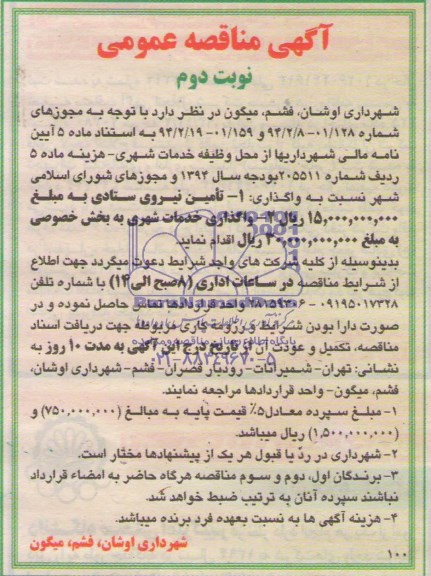 آگهی مناقصه عمومی
نوبت دوم
شهرداری اوشان، فشم، میگون در نظر دارد با توجه به مجوزهای
شماره ۰۱/۱۲۸-۹۴/۲/۸ و ۰۱/۱۵۹-۹۴/۲/۱۹ به استناد ماده ۵ آیین
نامه مالی شهرداریها از محل وظیفه خدمات شهری-هزینه ماده ۵
ردیف شماره ۲۰۵۵۱۱بودجه سال ۱۳۹۴ و مجوزهای شورای اسلامی
شهر نسبت به واگذاری: ۱- تأمین نیروی ستادی به مبلغ
۱۵,۰۰۰,۰۰۰,۰۰۰ ریال ۲- واگذاری خدمات شهری به بخش خصوصی
به مبلغ ۳۰,۰۰۰,۰۰۰,۰۰۰ ریال اقدام نماید.
بدینوسیله از کلیه شرکت های واجد شرایط دعوت میگردد جهت اطلاع
از شرایط مناقصه در ساعات اداری (۸صبح الی۱۴) با شماره تلفن
۰۹۱۹۵۰۱۷۳۲۸ - واحد قراردادها تماس حاصل نموده و در
صورت دارا بودن شرایط و رزومه کاری مربوطه جهت دریافت اسناد
مناقصه، تکمیل و عودت آن از تاریخ درج این آگهی به مدت ۱۰ روز به
نشانی: تهران-شمیرانات-رودبار قصران-فشم-شهرداری اوشان،
فشم، میگون-واحد قراردادها مراجعه نمایند.
۱- مبلغ سپرده معادل۵٪ قیمت پایه به مبالغ (۷۵۰,۰۰۰,۰۰۰) و
(۱,۵۰۰,۰۰۰,۰۰۰) ریال میباشد.
۲- شهرداری در ردّ یا قبول هر یک از پیشنهادها مختار است.
۳- برندگان اول، دوم و سوم مناقصه هرگاه حاضر به امضاء قرارداد
نباشند سپرده آنان به ترتیب ضبط خواهد شد.
۴- هزینه آگهی ها به نسبت بعهده فرد برنده میباشد.
شهرداری اوشان، فشم، میگون
۱۰۰
پایگاه اطلاع رسانی مناقصه و مزایده
۰۲۱-۸۸۳۴۹۶۷۰-۵